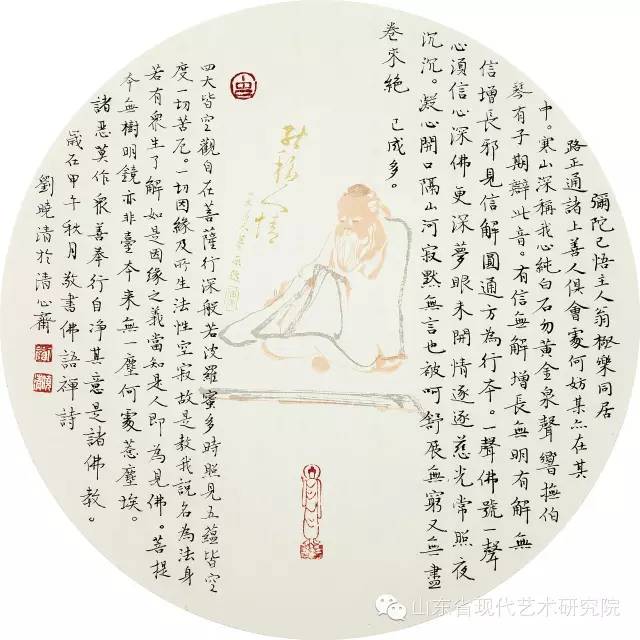 彌陀已悟主人翁極樂同居
路正通諸上善人俱會處何妨某亦在其
中。寒山深稱我心純白石勿黃金泉聲響撫伯
琴有子期辯此音。有信無解增長無明有解無
信增長邪見信解圓通方為行夲。一聲佛號一聲
心須信心深佛更深夢眼未開情逐逐慈光常照夜
沉沉。凝心開口隔山河寂默無言也被呵舒展無窮又無盡
卷來絕 已成多。
移人情
四大皆空觀自在菩薩行深般若波羅蜜多時照見五蘊皆空
度一切苦厄。一切因緣及所生法性空寂故是教我說名為法身
若有衆生了解如是因緣之義當知是人即為見佛。菩提
夲無樹明鏡亦非臺夲來無一塵何處惹塵埃。
諸惡莫作衆善奉行自净其意是諸佛教。
歲在甲午秋月敬書佛語禪詩
劉曉清於清心齋
山东省现代艺术研究院